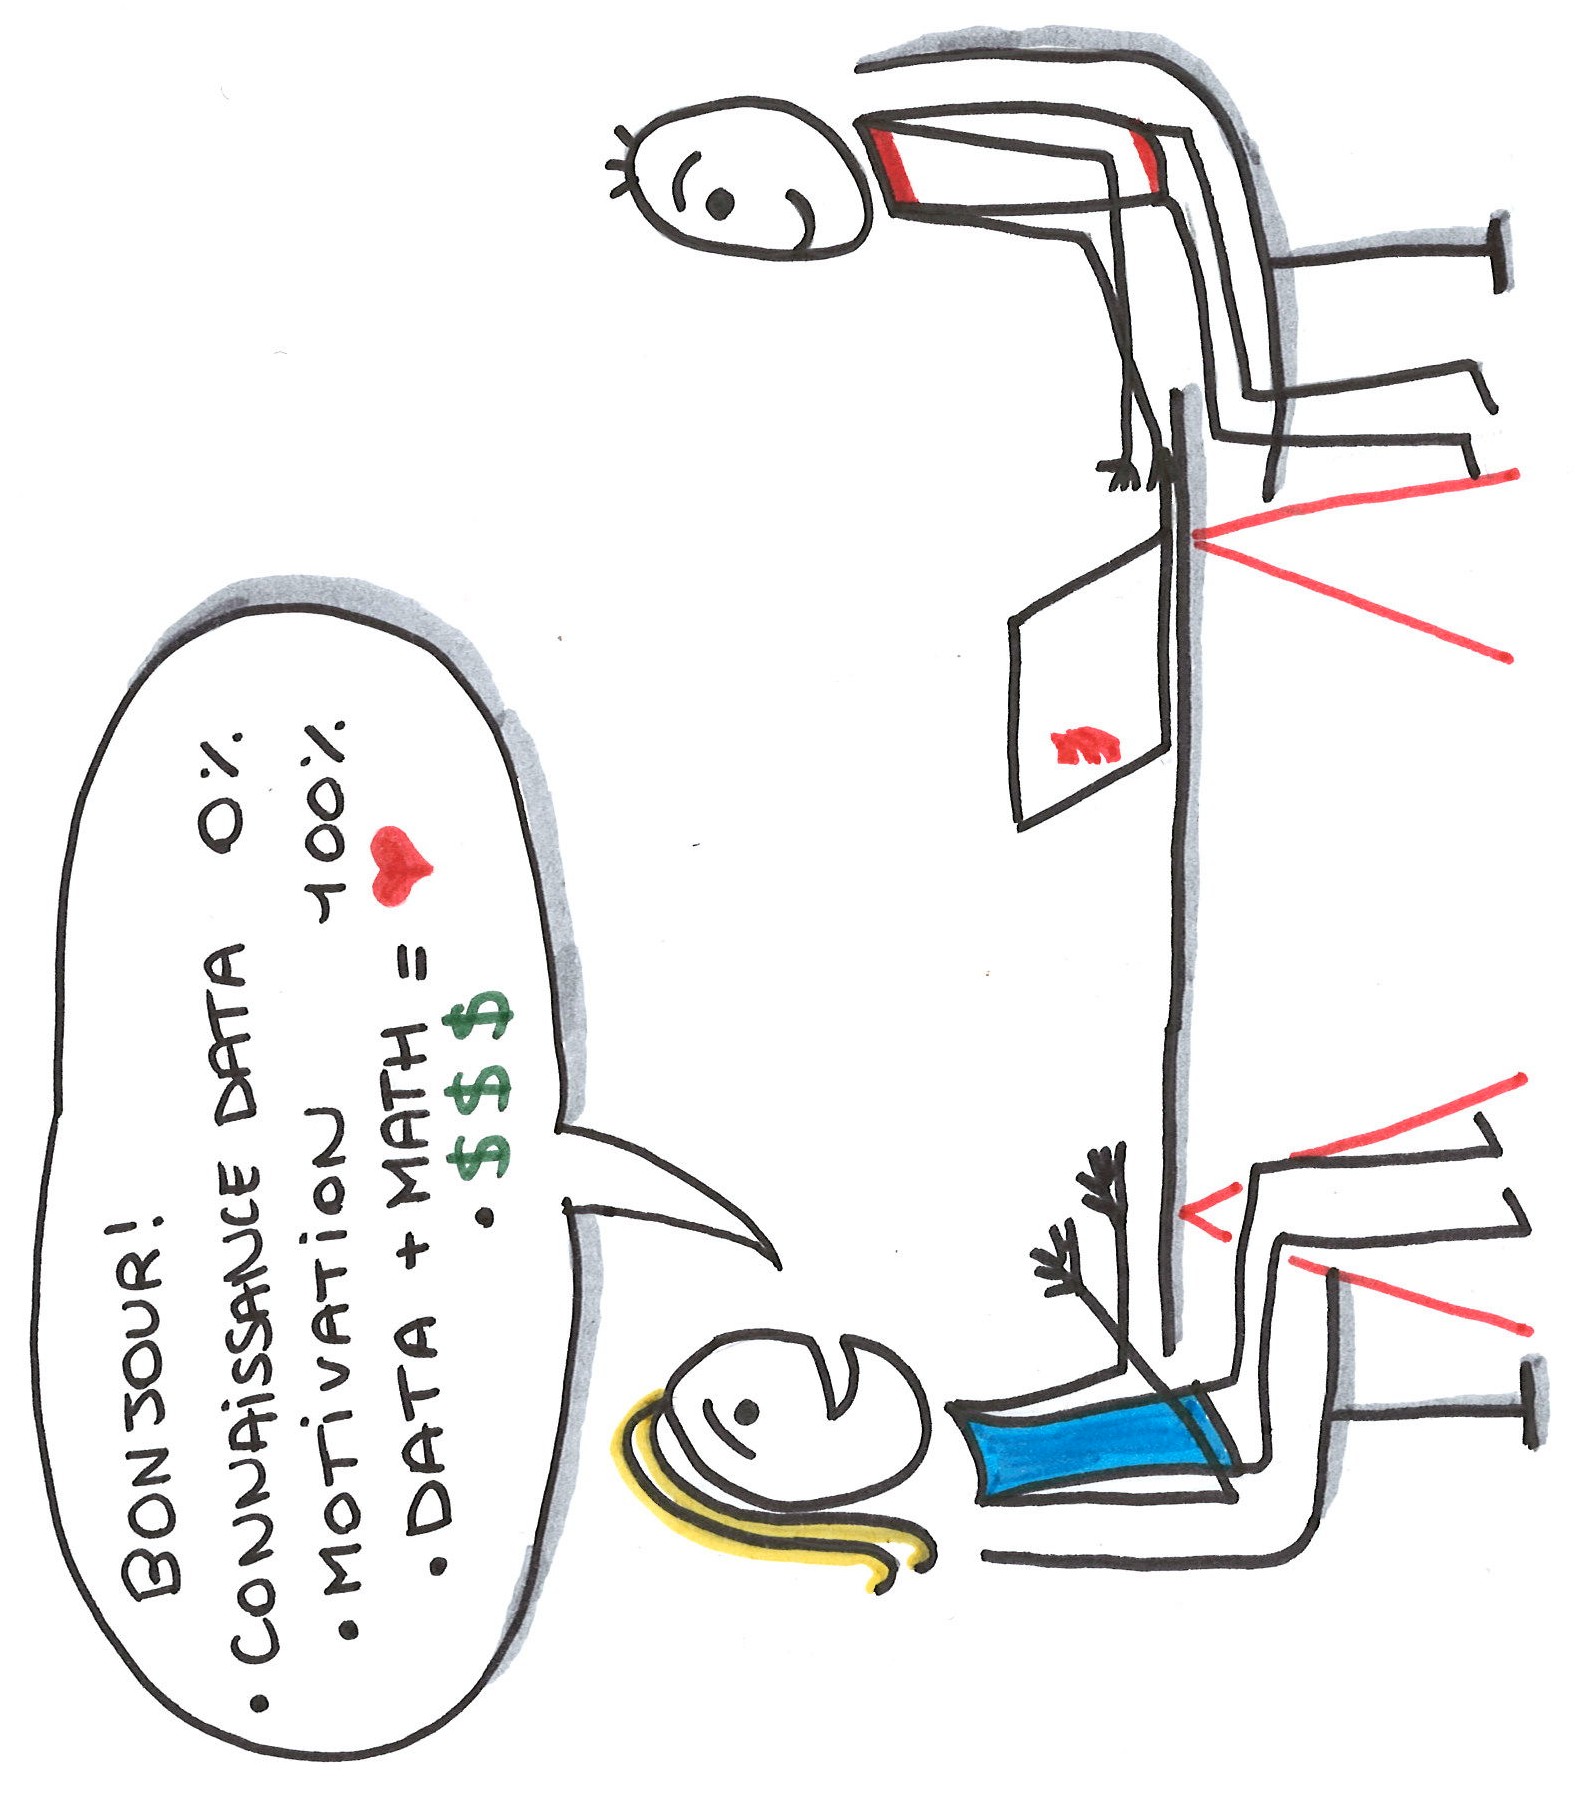 BONJOUR!
• CONNAiSSANCE DATA 0%
• MOTiVATiON 100%
• DATA + MATH = ❤
• $$$